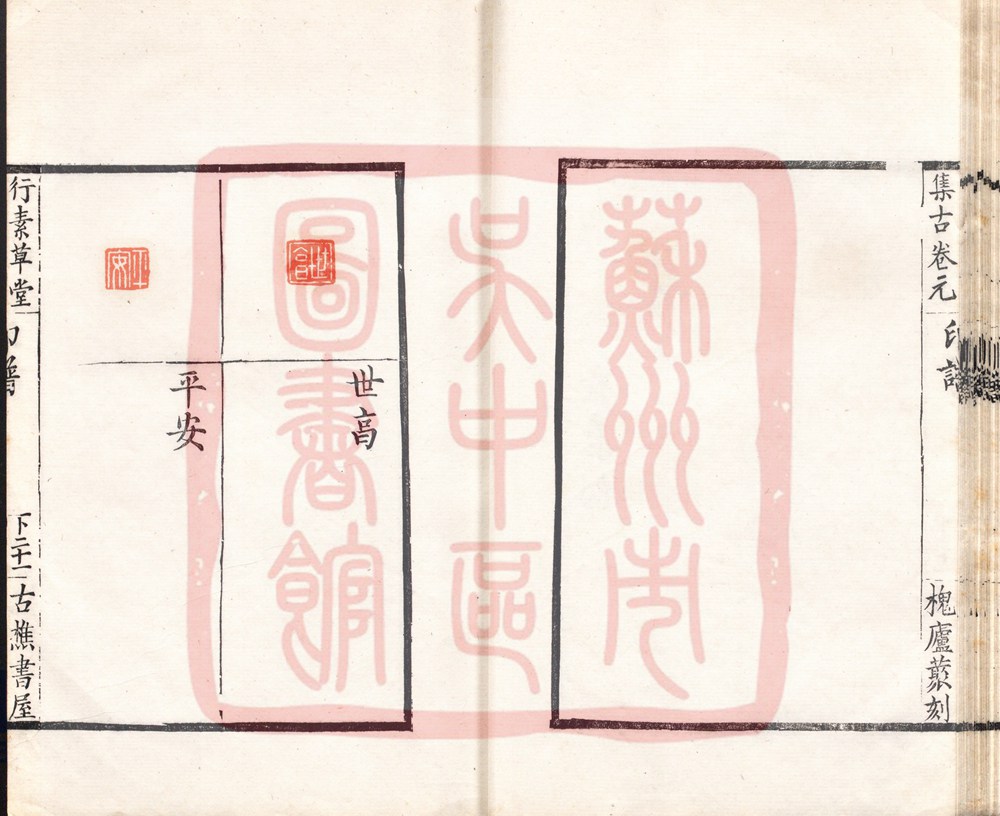 集古卷元
印譜
槐廬叢刻
蘇州市
吳中區
圖書館
世高
平安
行素草堂
印譜
下二十一
古樵書屋